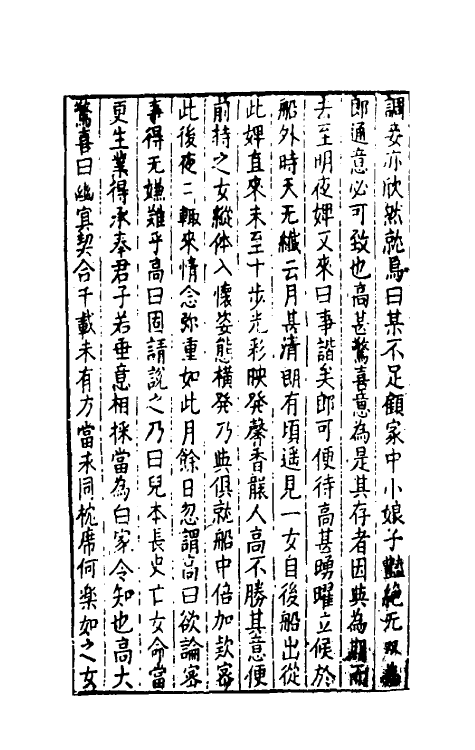 調妾亦欣然就焉曰某不足顧家中小娘子豔絶无双為
郎通意必可致也高甚驚喜意為是其存者因與為期而
去至明夜婢又來曰事諧矣郎可便待高甚踴曜立候於
船外時天无纎云月甚清朗有頃遥見一女自後船出從
此婢直來未至十步光彩映発馨香襲人高不勝其意便
前持之女縦体入懐姿態横発乃與俱就船中倍加欵密
此後夜二輙來情念弥重如此月餘日忽謂高曰欲論密
事得无嫌難乎高曰固請說之乃曰兒本長史亡女命當
更生業得承奉君子若垂意相採當為白家令知也高大
驚喜曰幽冥契合千載未有方當末同枕席何楽如之女